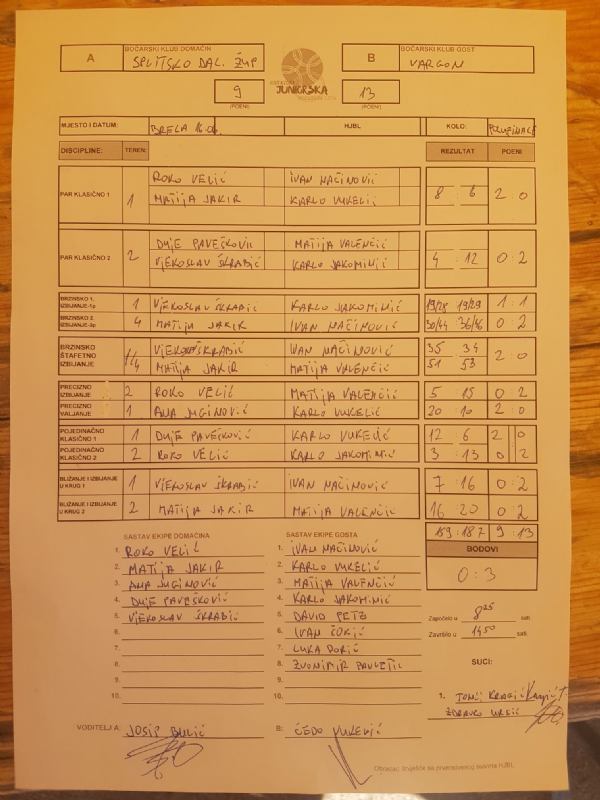 A BOČARSKI KLUB DOMAĆIN SPLITSKO DAL. ŽUP B BOČARSKI KLUB GOST VARGON
JUNIORSKA
9 13
(POENI) (POENI)
MJESTO I DATUM: BRELA 16.06. HJBL KOLO:
DISCIPLINE: TEREN: REZULTAT POENI
PAR KLASIČNO 1 1 ROKO VELIĆ IVAN MAČINOVIĆ 8 6 2 0
MATIJA JAKIR KARLO VUKELIĆ
PAR KLASIČNO 2 2 DUJE PAVEŠKOVIĆ MATIJA VALENČIĆ 4 : 12 0 2
VJEKOSLAV ŠKRABIĆ KARLO JAKOMINIĆ
BRZINSKO 1. IZBIJANJE-1p 1 VJEKOSLAV ŠKRABIĆ KARLO JAKOMINIĆ 19/28 19/29 1 : 1
BRZINSKO 2. IZBIJANJE-3p 4 MATIJA JAKIR IVAN MAČINOVIĆ 30/44 36/46 0 : 2
BRZINSKO ŠTAFETNO IZBIJANJE 1/4 VJEKOSLAV ŠKRABIĆ IVAN MAČINOVIĆ 35 34 2 : 0
MATIJA JAKIR MATIJA VALENČIĆ 51 53
PRECIZNO IZBIJANJE 2 ROKO VELIĆ MATIJA VALENČIĆ 5 : 15 0 2
PRECIZNO VALJANJE 1 ANA JUGINOVIĆ KARLO VUKELIĆ 20 : 10 2 : 0
POJEDINAČNO KLASIČNO 1 1 DUJE PAVEŠKOVIĆ KARLO VUKELIĆ 12 6 2 0
POJEDINAČNO KLASIČNO 2 2 ROKO VELIĆ KARLO JAKOMINIĆ 3 : 13 0 2
BLIŽANJE I IZBIJANJE U KRUG 1 1 VJEKOSLAV ŠKRABIĆ IVAN MAČINOVIĆ 7 : 16 0 : 2
BLIŽANJE I IZBIJANJE U KRUG 2 2 MATIJA JAKIR MATIJA VALENČIĆ 16 : 20 0 : 2
159 : 187 9 : 13
BODOVI
0 : 3
SASTAV EKIPE DOMAĆINA SASTAV EKIPE GOSTA
1. ROKO VELIĆ 1. IVAN MAČINOVIĆ
2. MATIJA JAKIR 2. KARLO VUKELIĆ
3. ANA JUGINOVIĆ 3. MATIJA VALENČIĆ
4. DUJE PAVEŠKOVIĆ 4. KARLO JAKOMINIĆ
5. VJEKOSLAV ŠKRABIĆ 5. DAVID PETZ
6. 6. IVAN
7. 7. LUKA
8. 8. ZVONIMIR PAVLETIĆ
9. 9.
10. 10.
Započelo u 8 25 sati
Završilo u 14 50 sati
SUCI:
1. TONĆI
ZDRAVKO URSIĆ
VODITELJ A: JOSIP BULIĆ B: ČEDO VUKELIĆ